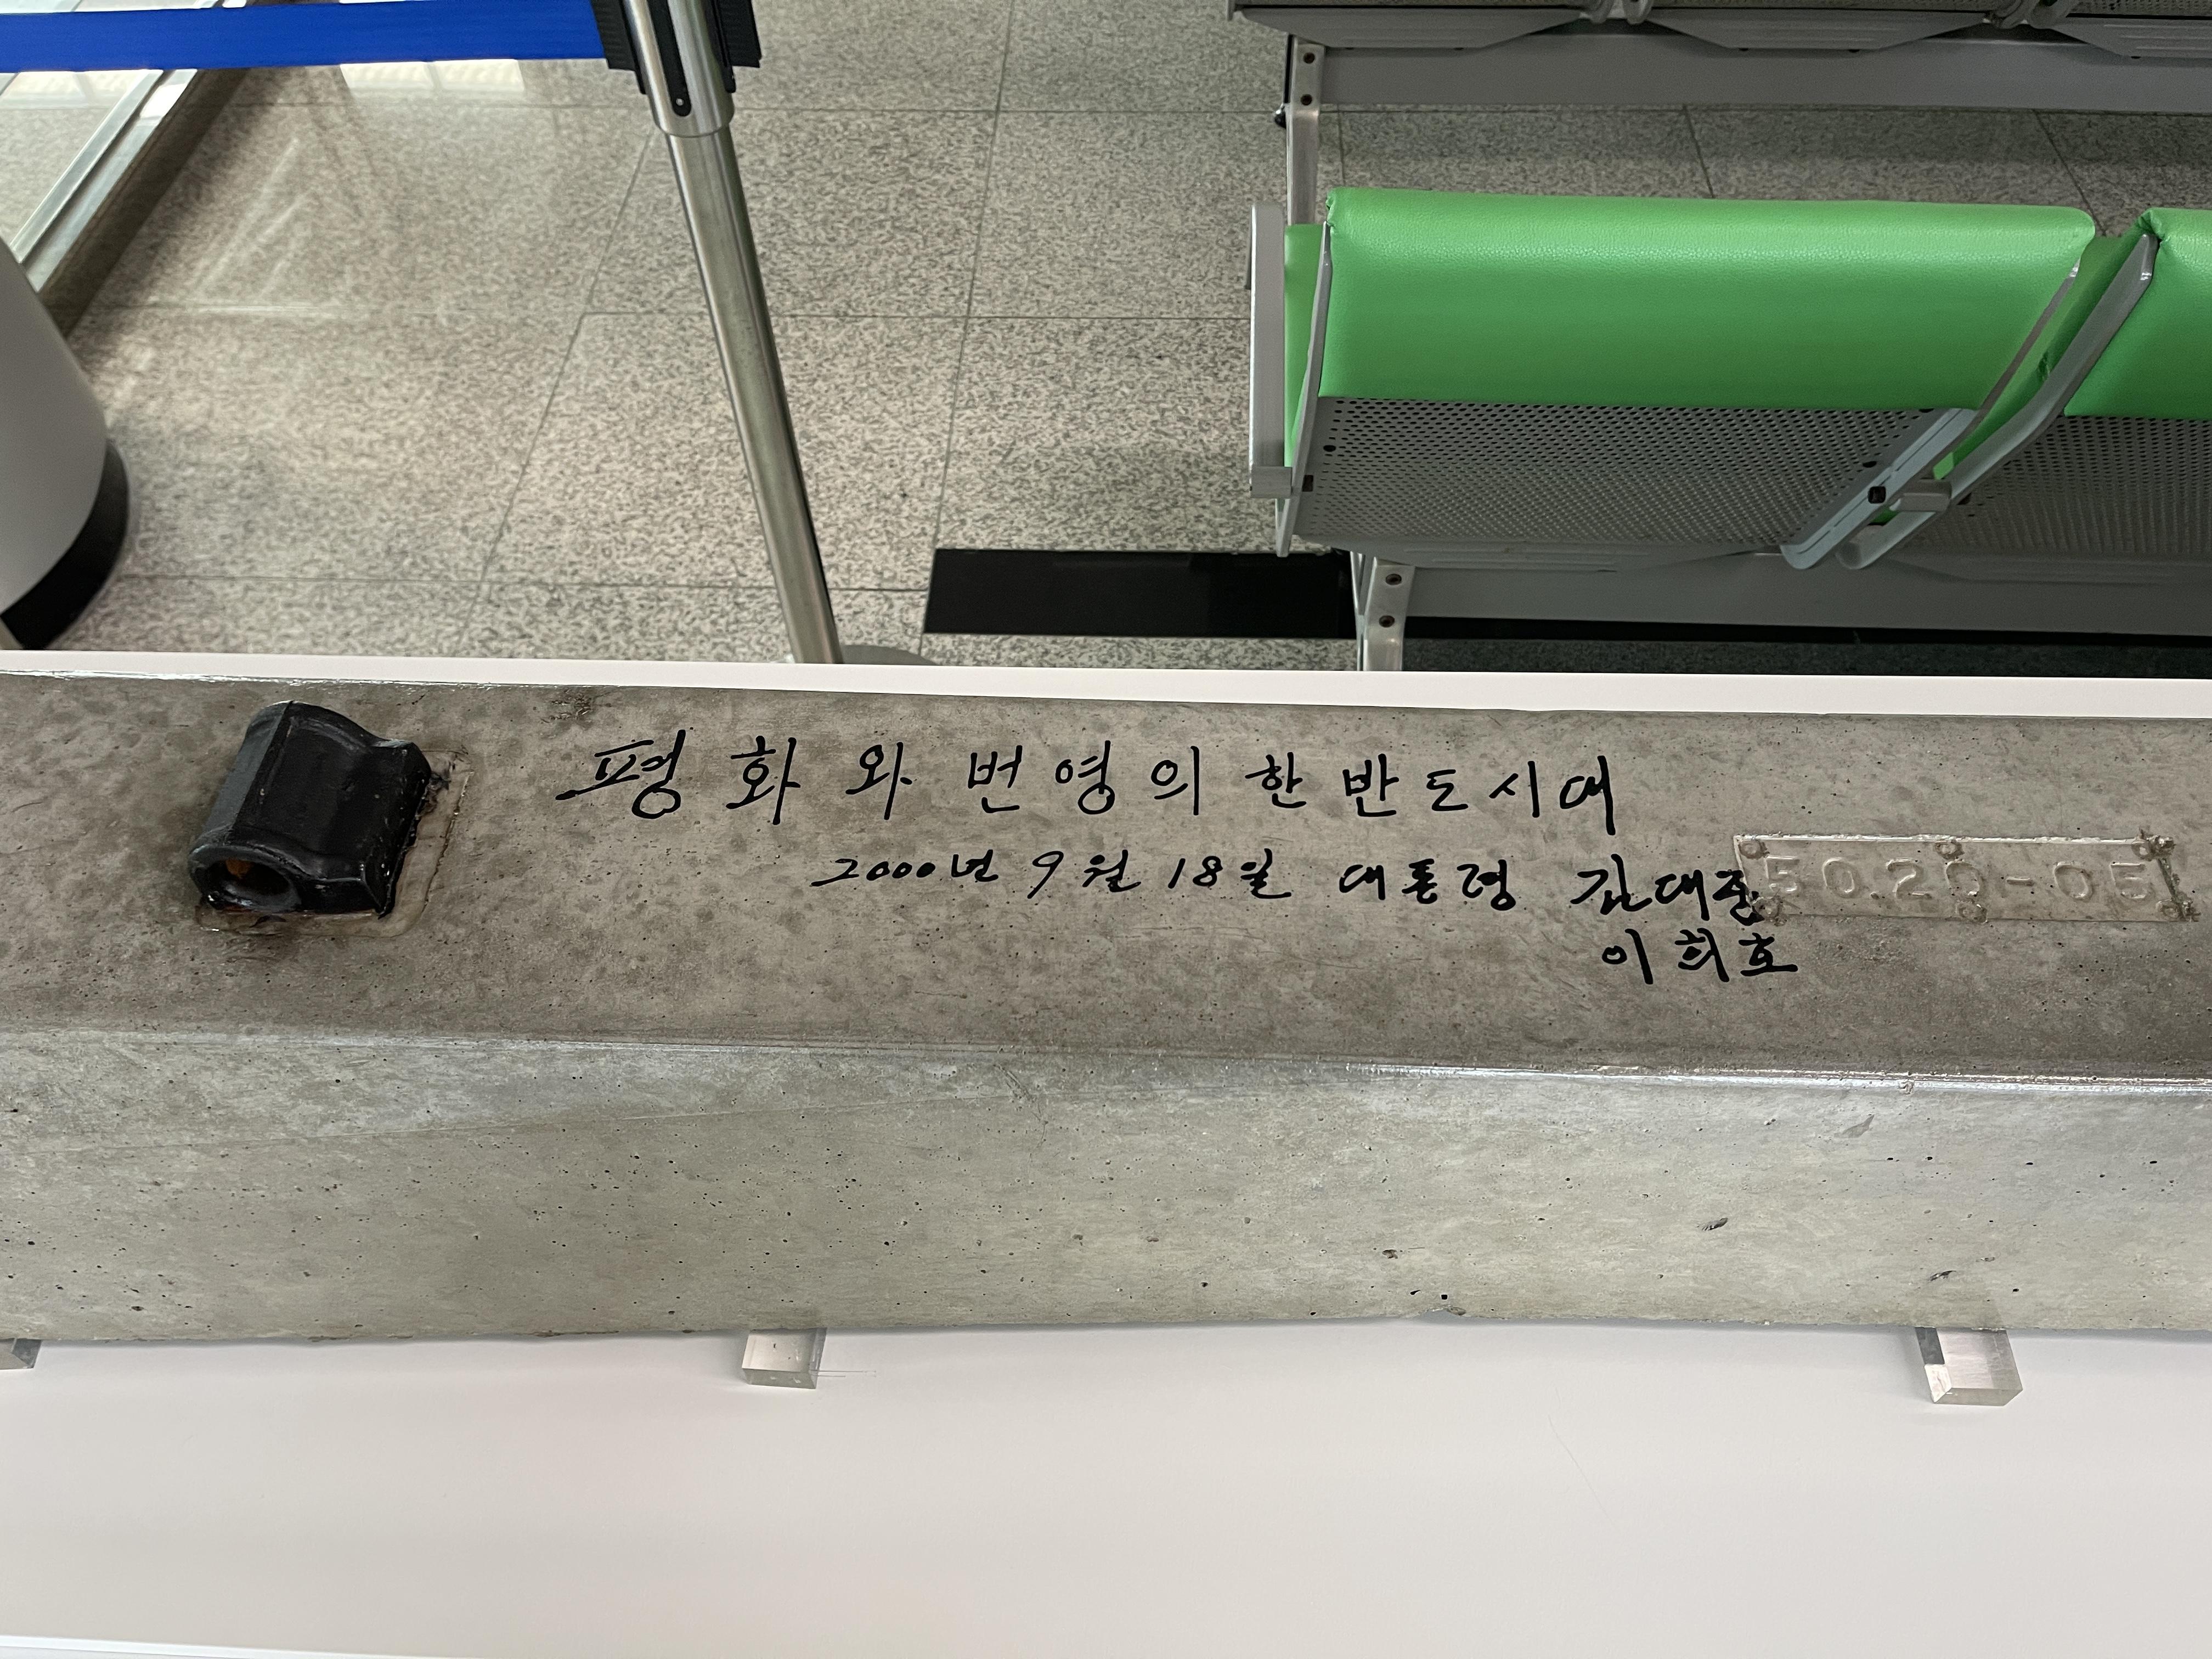 평화와 번영의 한반도시대
2000년 9월 18일 대통령 김대중
이희호
50.20-05